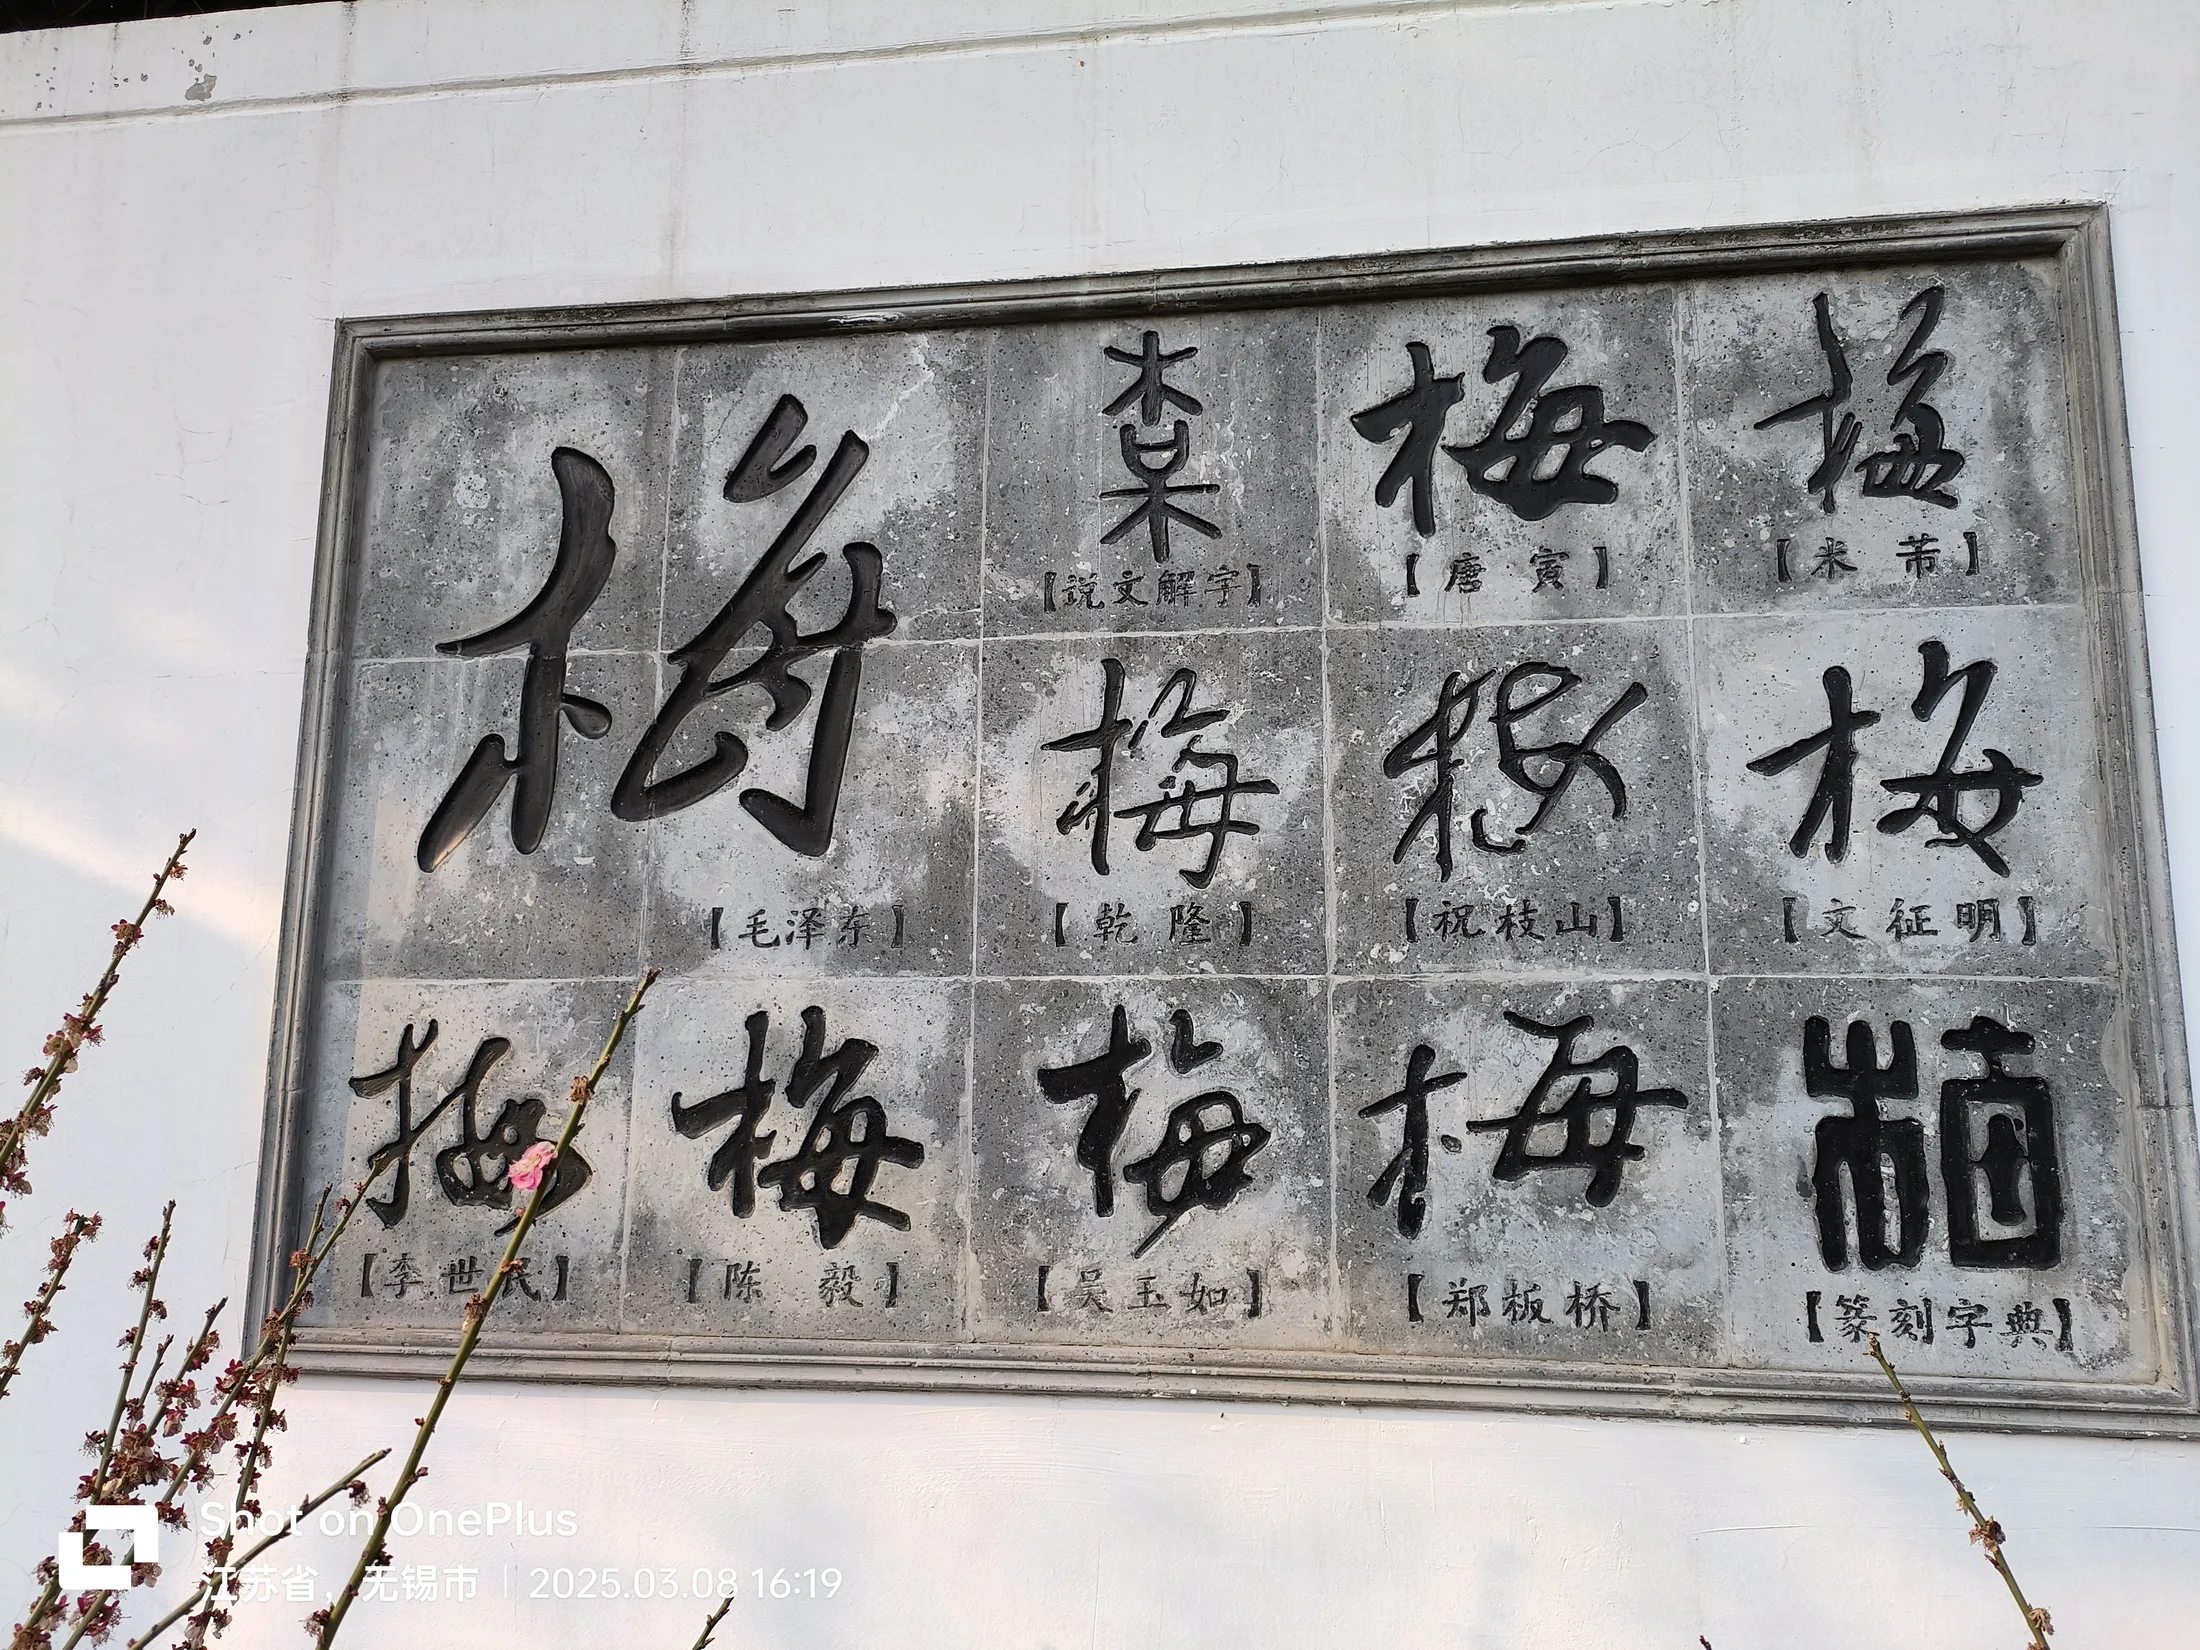 梅
【毛泽东】
槑
【说文解字】
梅
【唐 寅】
梅
【米 芾】
梅
【乾 隆】
梅
【祝枝山】
梅
【文征明】
梅
【李世民】
梅
【陈 毅】
梅
【吴玉如】
梅
【郑板桥】
梅
【篆刻字典】
Shot on OnePlus
江苏省，无锡市 | 2025.03.08 16:19